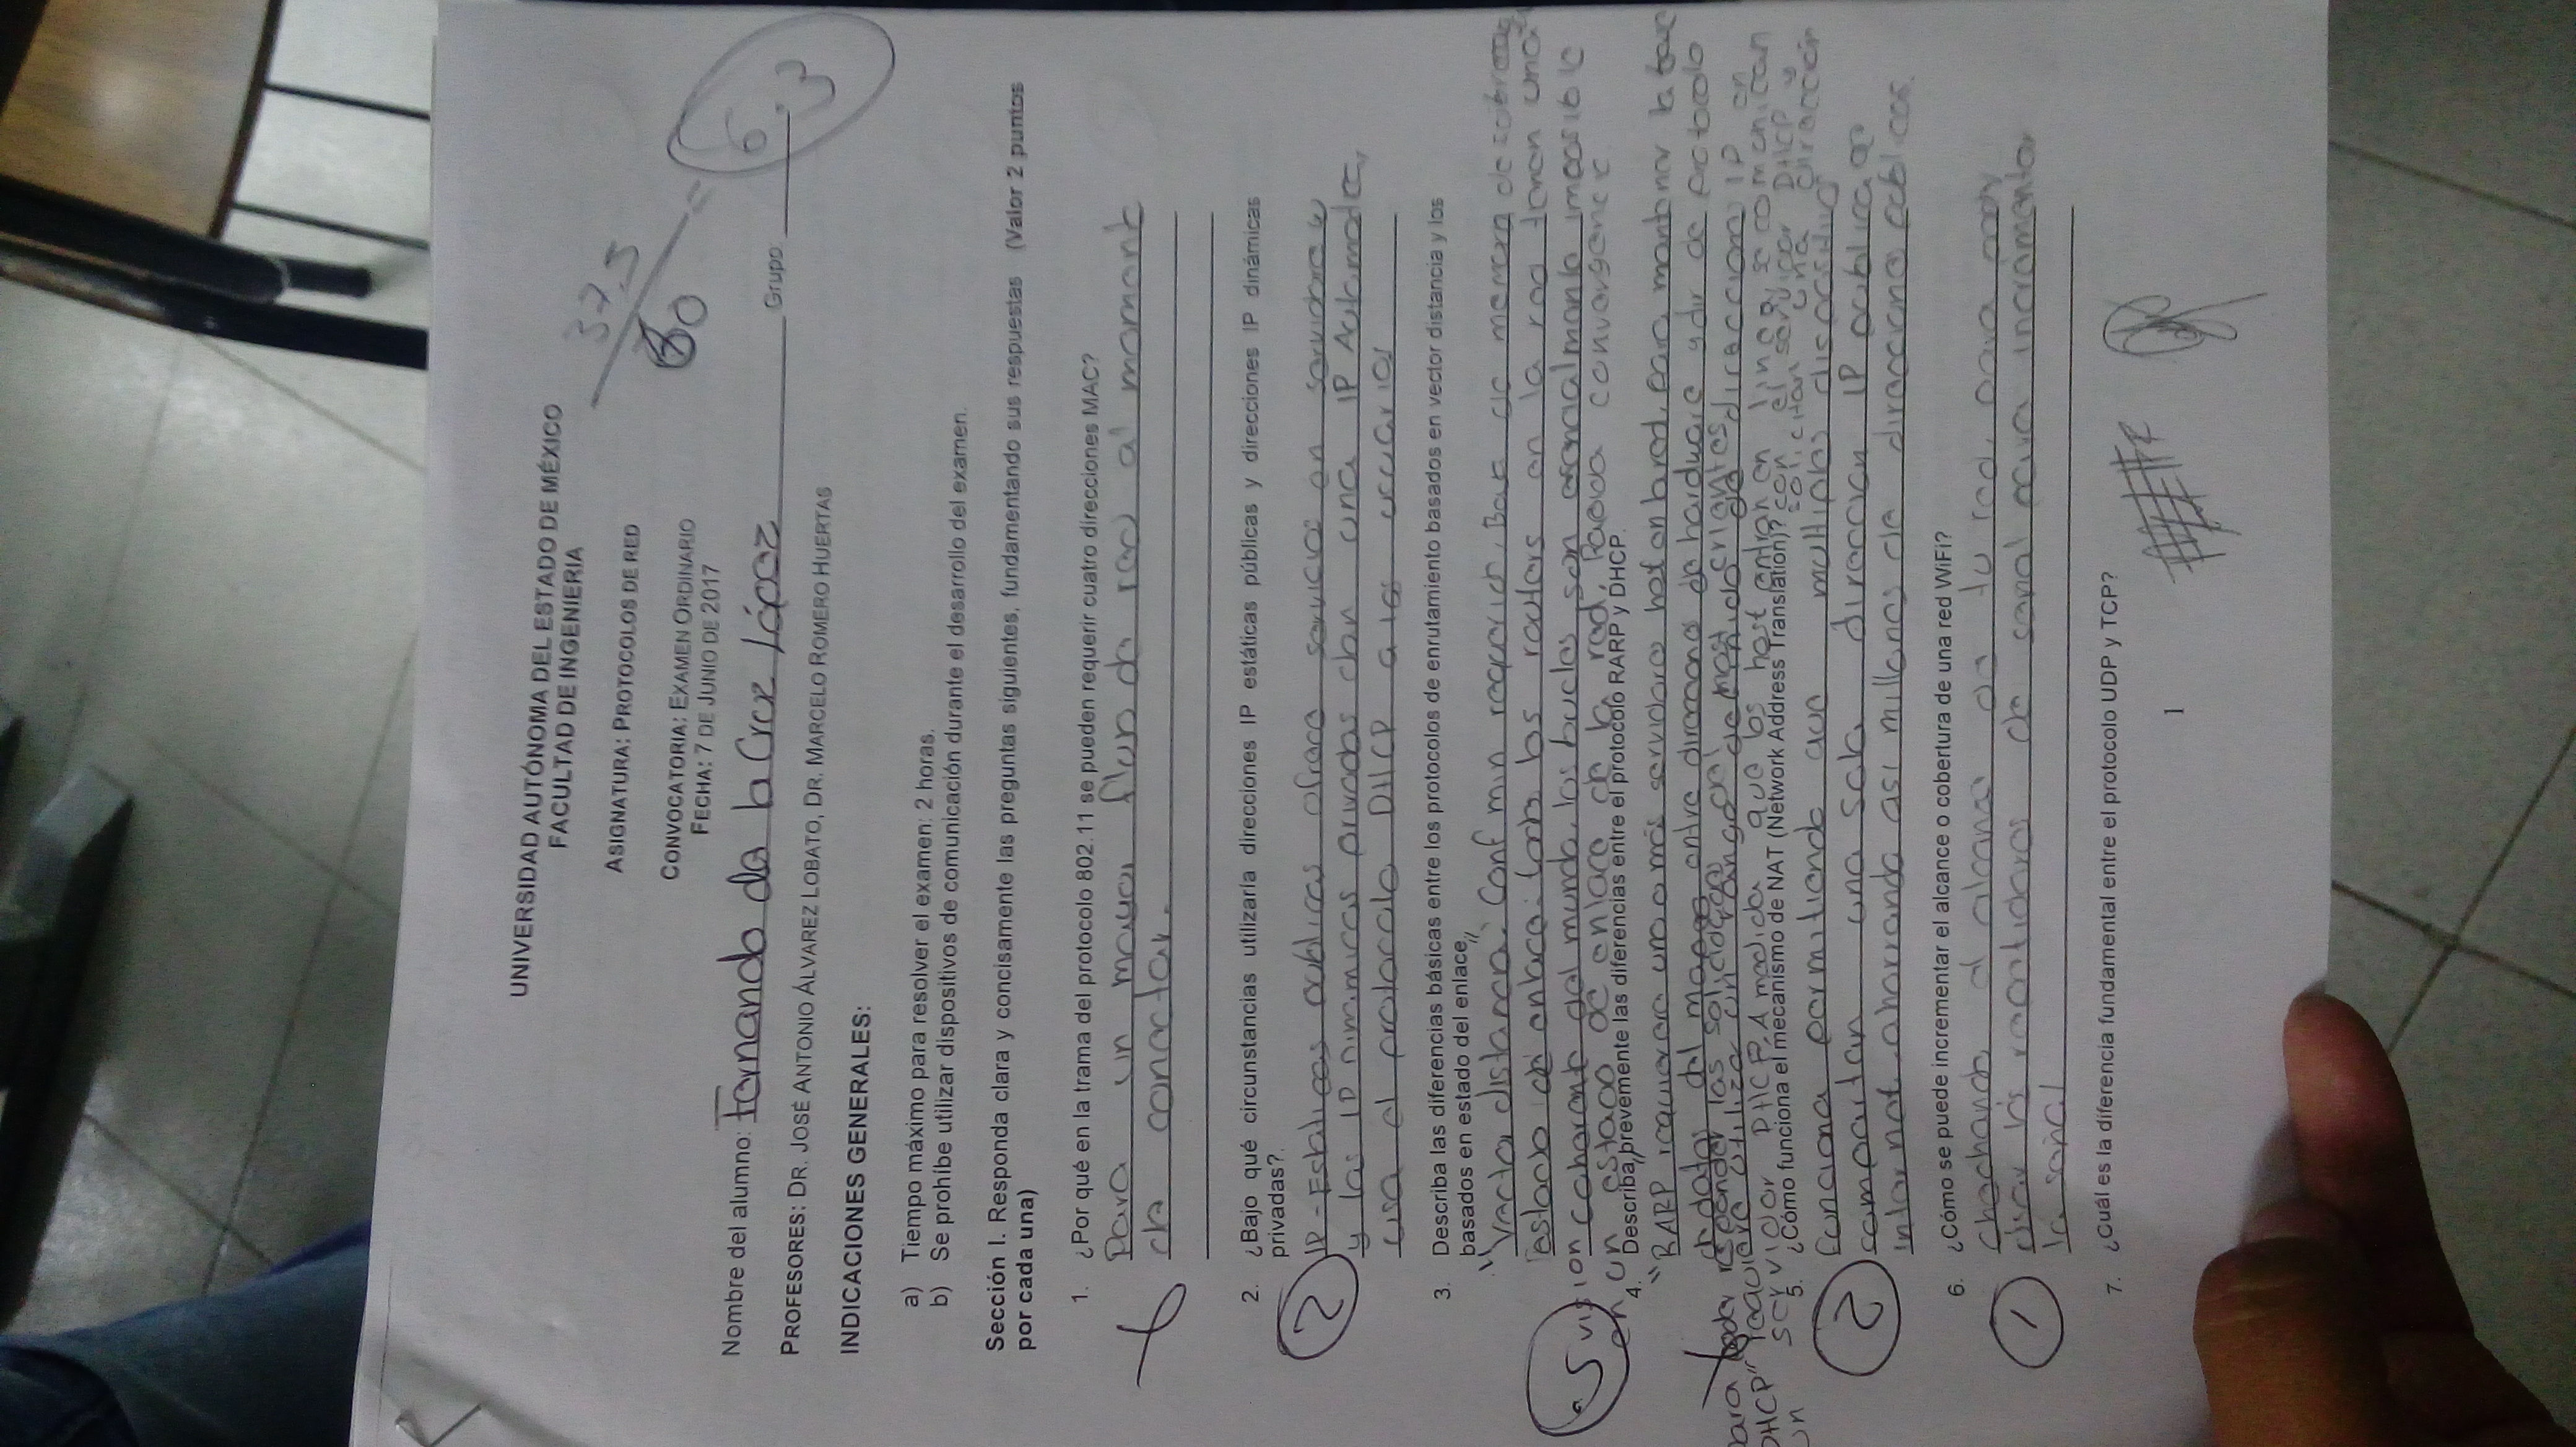 UNIVERSIDAD AUTÓNOMA DEL ESTADO DE MÉXICO
FACULTAD DE INGENIERIA
ASIGNATURA: PROTOCOLOS DE RED
37.5
60
6.3
CONVOCATORIA: EXAMEN ORDINARIO
FECHA: 7 DE JUNIO DE 2017
Nombre del alumno: Fernando de la Cruz López Grupo
PROFESORES: DR. JOSÉ ANTONIO ÁLVAREZ LOBATO, DR. MARCELO ROMERO HUERTAS
INDICACIONES GENERALES:
a) Tiempo máximo para resolver el examen: 2 horas.
b) Se prohíbe utilizar dispositivos de comunicación durante el desarrollo del examen.
Sección I. Responda clara y concisamente las preguntas siguientes, fundamentando sus respuestas (Valor 2 puntos
por cada una)
1. ¿Por qué en la trama del protocolo 802.11 se pueden requerir cuatro direcciones MAC?
Para un mayor flujo de red al momento
de conectar.
2. ¿Bajo qué circunstancias utilizaría direcciones IP estáticas públicas y direcciones IP dinámicas
privadas?.
2 IP - Estaticas publicas ofrece servicios en servidores
y las IP Dinamicas privadas dan una IP
usa el protocolo DHCP a los usuarios
3. Describa las diferencias básicas entre los protocolos de enrutamiento basados en vector distancia y los
basados en estado del enlace
"Vector distancia": Conf min de memoria
estado de enlace: todos los routers en la red tienen una
.5 vision coherente del mundo, los bucles son esencialmente imposible
en un estado de enlace de la red. Rapida convergencia
4. Describa brevemente las diferencias entre el protocolo RARP y DHCP.
"RARP requierere uno o más servidores host en la red, para mantener la base
de datos del mapeo entre direcciones de hardware y dir de protocolo
para poder responder las solicitudes del host clientes
DHCP" requiere utiliza un rango definido de direccion IP en
un servidor DHCP. A medida que los host entran en linea, se comunican
con el servidor DHCP y
solicitan una dirección
5. ¿Cómo funciona el mecanismo de NAT (Network Address Translation)?
funciona permitiendo que multiples dispositivos
2 compartan una sola direccion IP publica
internet ahorrando asi millones de direcciones publicas
6. ¿Cómo se puede incrementar el alcance o cobertura de una red WiFi?
Chechando el alcance de tu red, para poder
1 usar los repetidores de señal para incrementar
la señal
7. ¿Cuál es la diferencia fundamental entre el protocolo UDP y TCP?
1